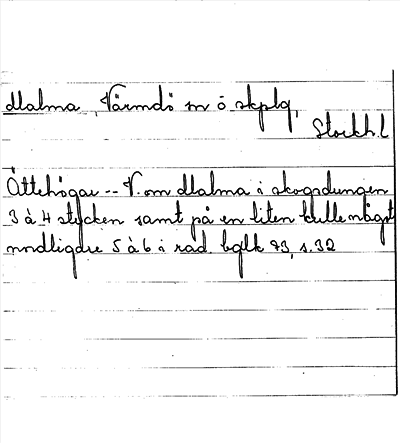 Malma, Värmdö sn o skplg,
Stockh.l
Ättehögar -- V. om Malma i skogsdungen
3 à 4 stycken samt på en liten kulle något
nordligare 5 à 6 i rad. bglk 73, s. 32